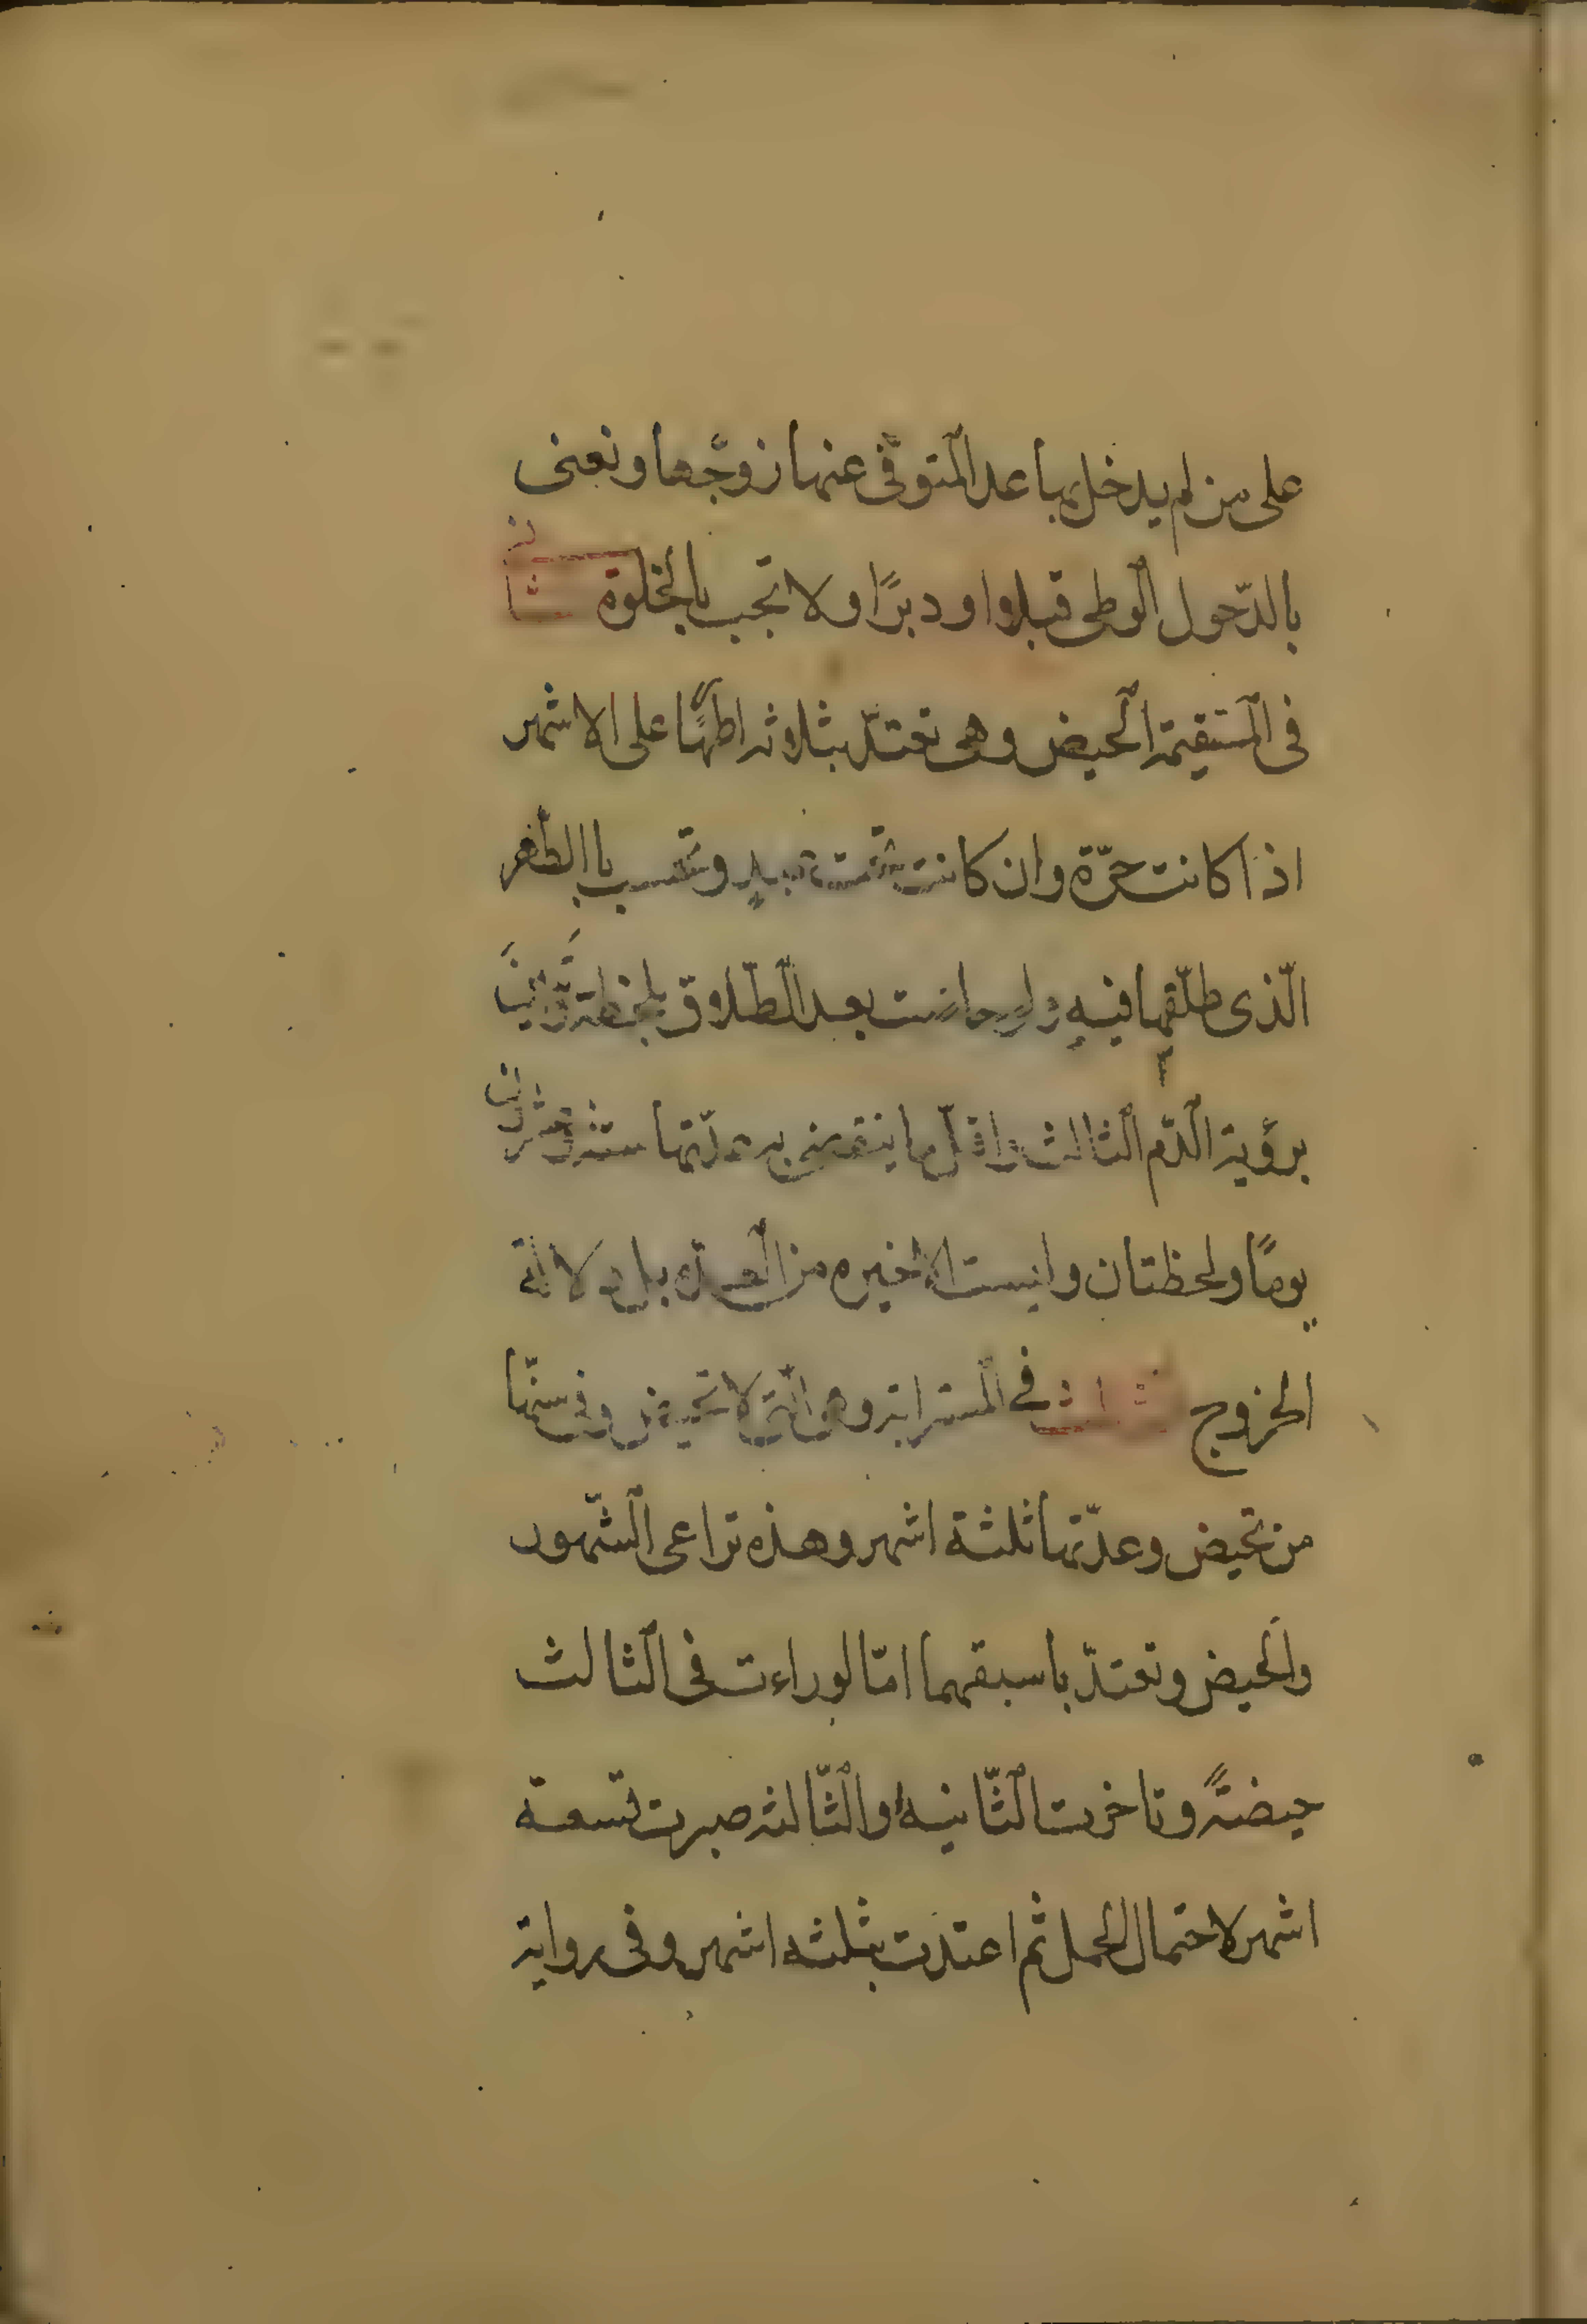 على من لم يدخل بها عدا المتوفّى عنها زوجها ونعنى
بالدّخول الوطى قبلا او دبرًا ولا تجب بالخلوة
فى المستقيمة الحيض وهى تعتدّ بثلاثة اطهارٍ على الاشهر
اذا كانت حرّة وان كانت تحت عبدٍ وتحتسب باالطّهر
الّذى طلّقها فيه ولو حاضت بعد الطّلاق بلحظة وتبين
برؤية الدّم الثالث واقلّ ما ينقضى به عدّتها ستّة وعشرون
يومًا ولحظتان وليست الاخيره من العدّة بل دلالة
الخروج الثالث فى المسترابة وهى الّتى لا تحيض وفى سنّها
من تحيض وعدّتها ثلثة اشهر وهذه تراعى الشّهور
والحيض وتعتدّ باسبقهما امّا لو راءت فى الثالث
حيضةً وتاخرت الثّانية او الثّالثه صبرت تسعة
اشهر لاحتمال الحمل ثم اعتدت بثلثه اشهر وفى رواية